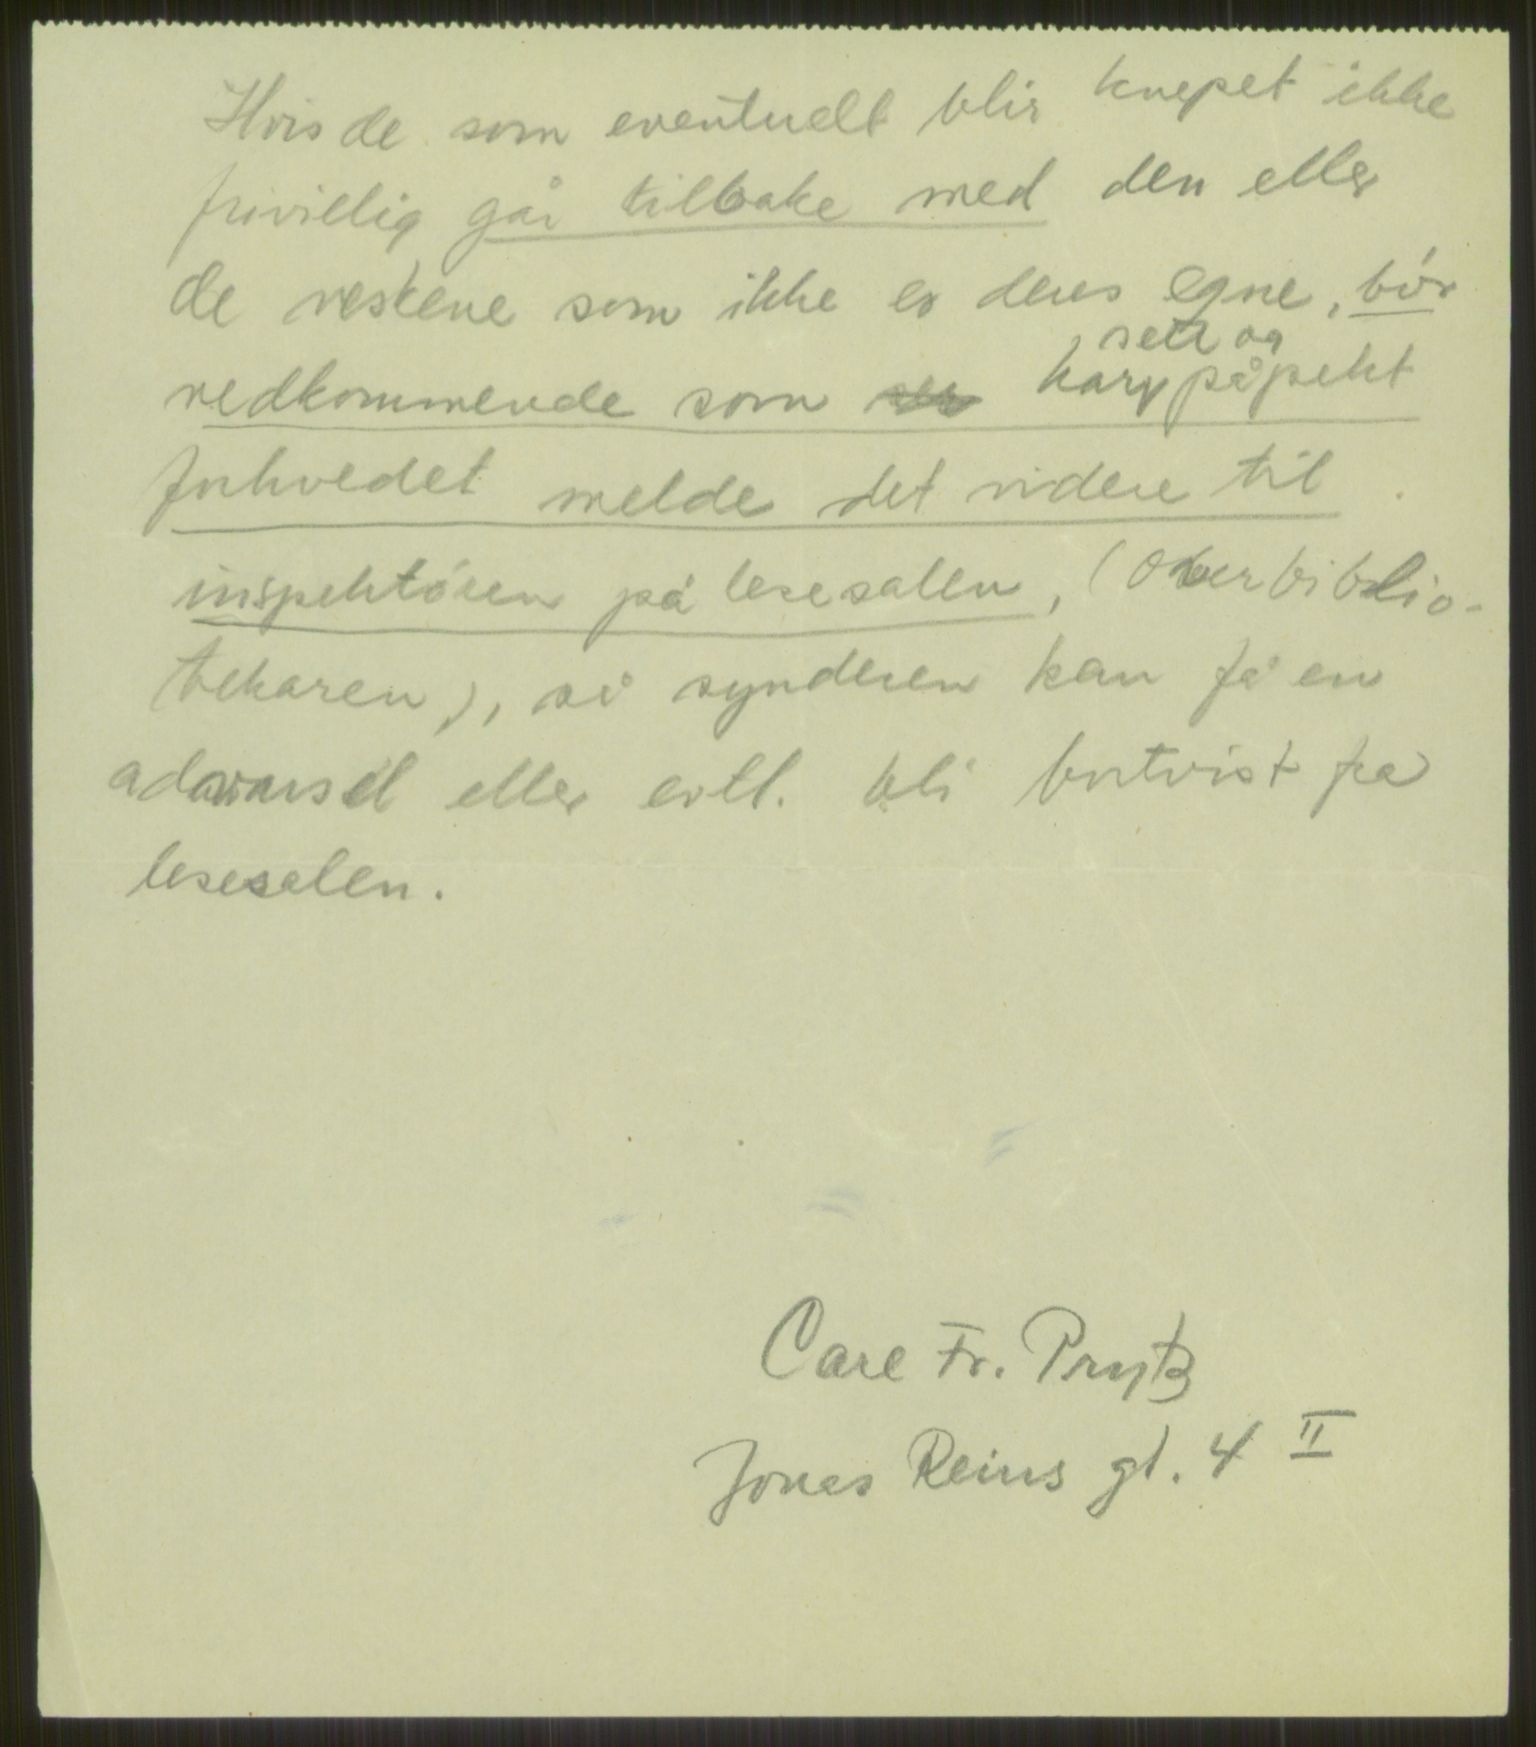 Hvis de som eventuelt blir knepet ikke
frivillig går tilbake med den eller
de veskene som ikke er deres egne, bør
vedkommende som har sett og påpekt
forholdet melde det videre til
inspektøren på lesesalen, (Overbiblio-
tekaren), så synderen kan få en
advarsel eller evtl. bli bortvist fra
lesesalen.
Carl Fr. Prytz
Jonas Reins gt. 4 II